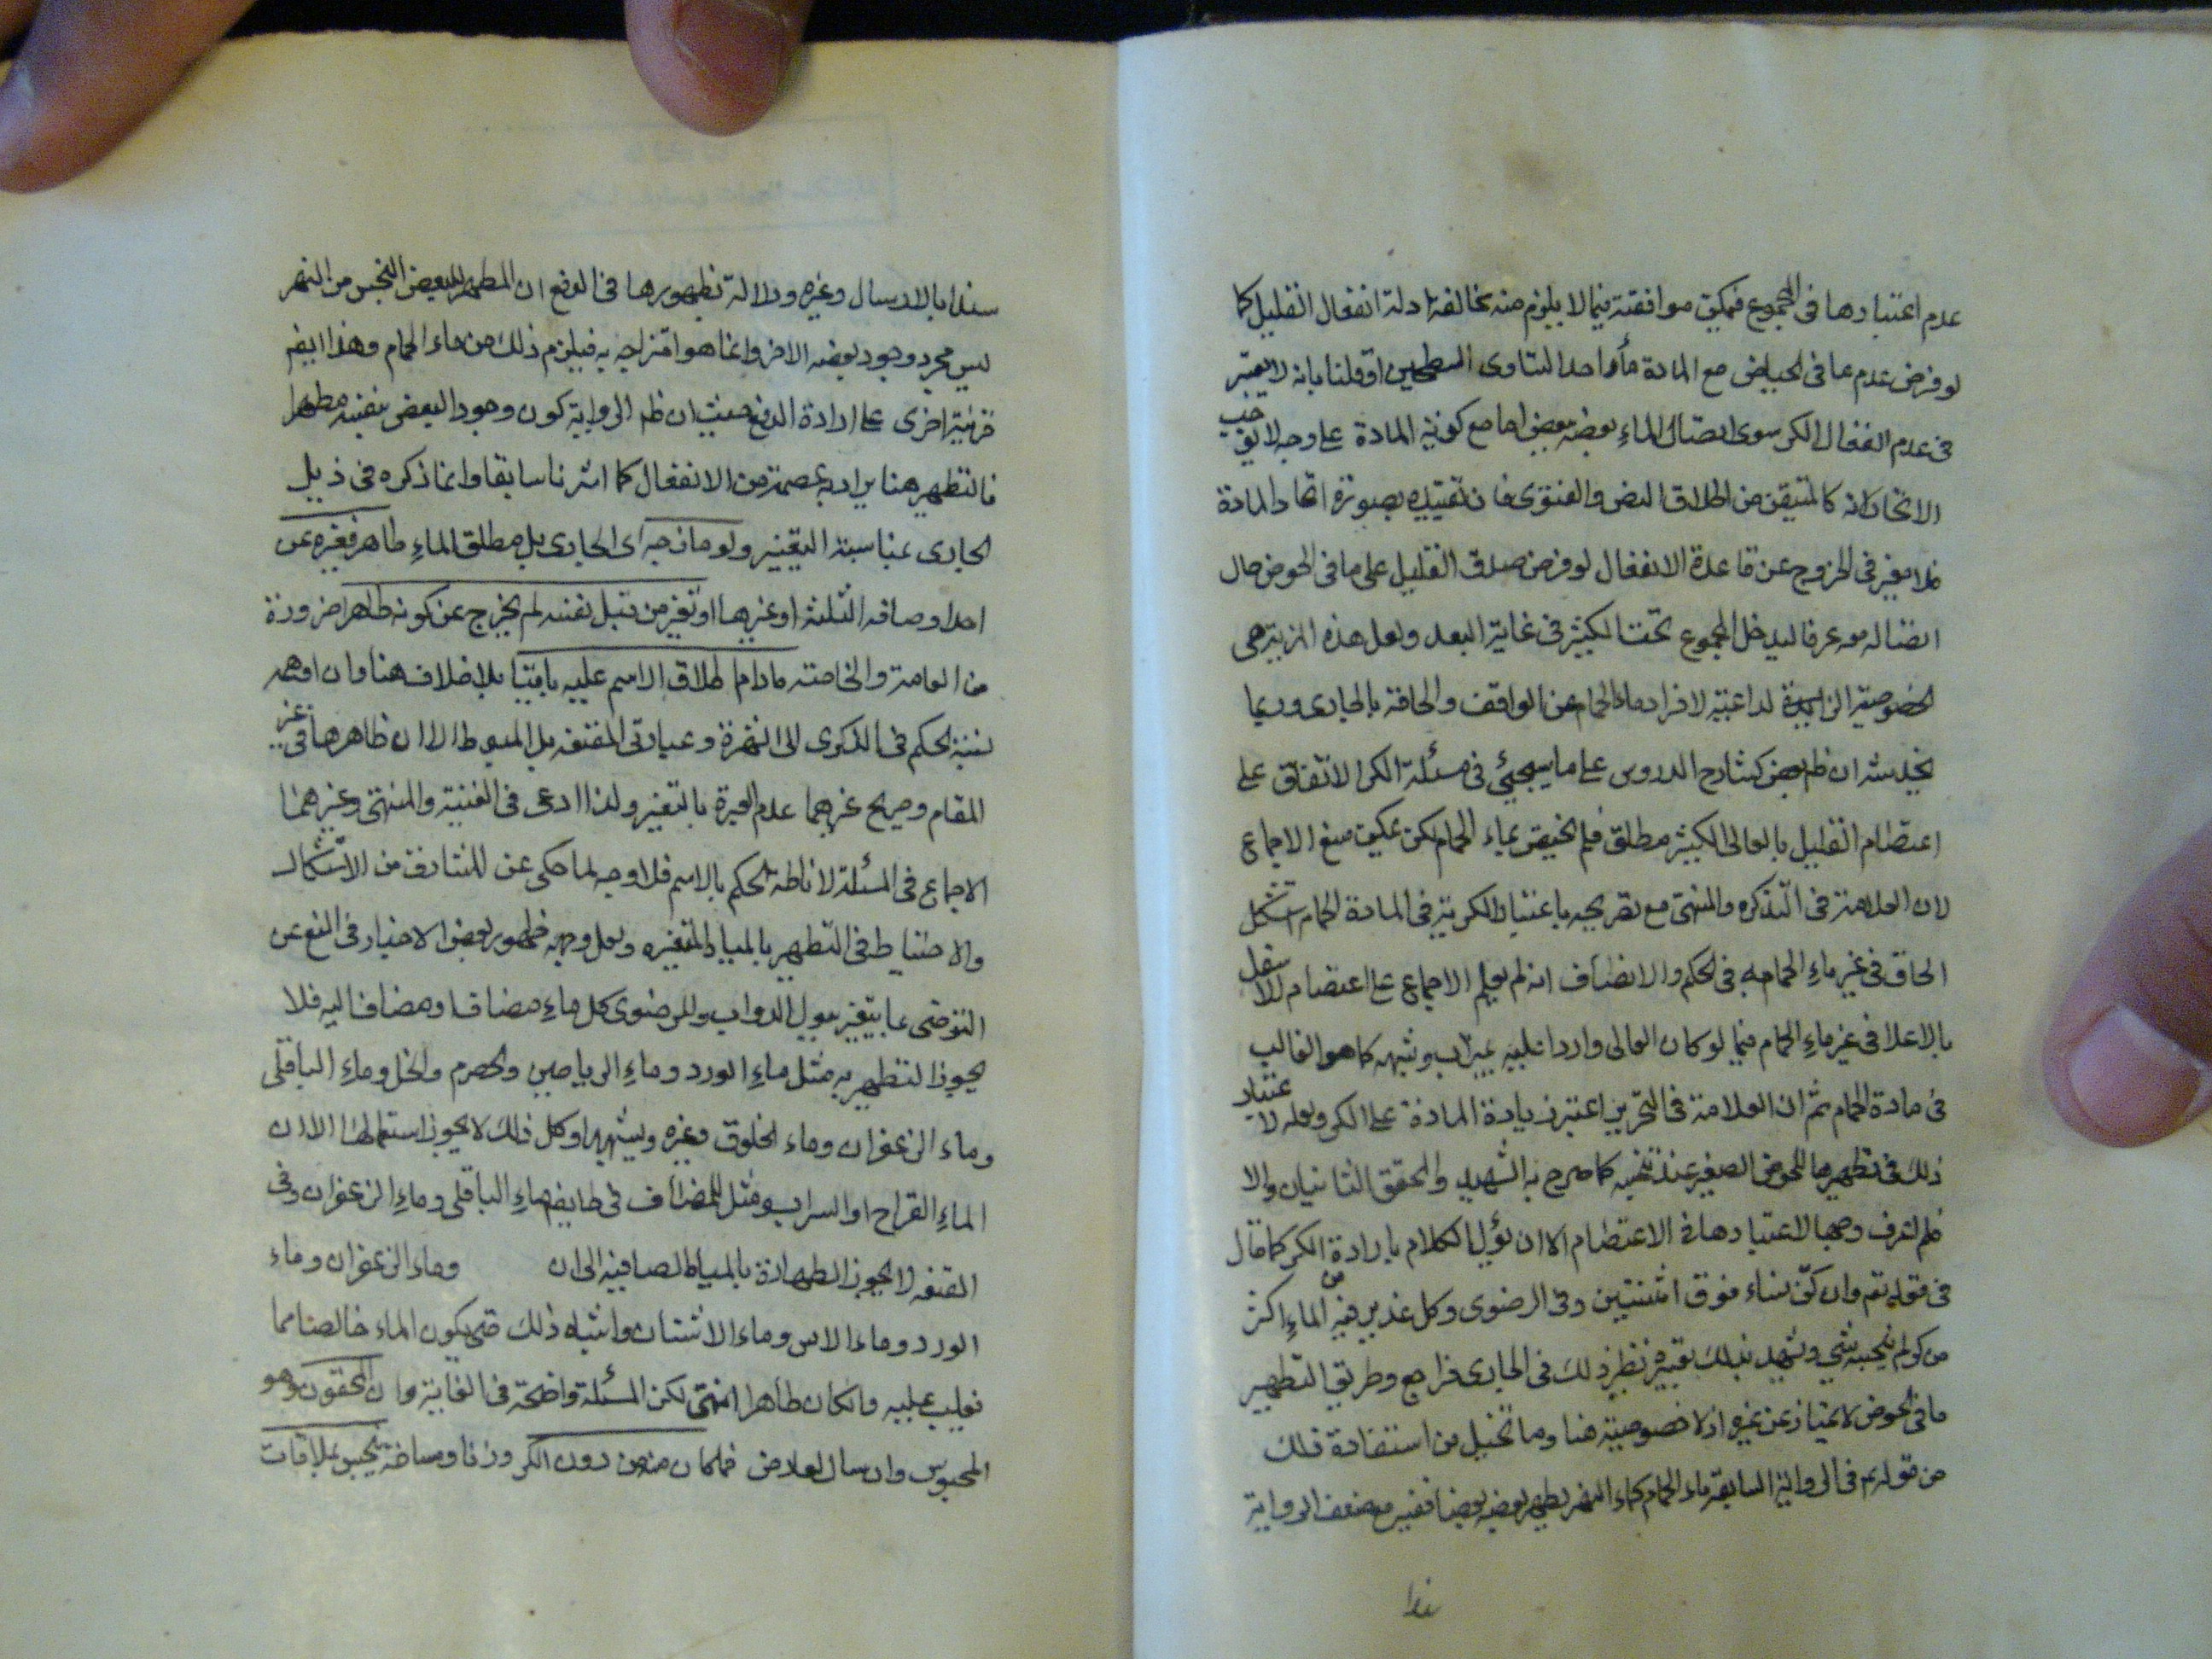 عدم اعتبارها فى المجموع فيمكن موافقته فيما لا يلزم منه مخالفة ادلة انفعال القليل كما
لو فرض عدم ما فى الحياض مع المادة ماء واحدا لتساوى السطحين او قلنا بانه لا يعتبر
فى عدم انفعال الكر سوى اتصال الماء بعضه ببعض اما مع كون المادة على وجه لا يوجب
الاتحاد كانه كالمتيقن من اطلاق النص والفتوى فان تقييده بصورة اتحاد المادة
فلا مفر فى الخروج عن قاعدة الانفعال لو فرض صدق القليل على ما فى الحوض حال
اتصاله معه عرفا ليدخل المجموع تحت الكثير فى غاية البعد ولعل هذه المزية هى
الخصوصية الزايدة لداعية لافراد ماء الحمام عن الواقف والحاقه بالجارى وربما
يخدشه ان ظ بعض كشارح الدروس على ما سيجئ فى مسئلة الكر الاتفاق على
اعتصام القليل بالعالى الكثير مطلق فلم يختص بماء الحمام لكن يمكن منع الاجماع
لان العلامة فى التذكره والمنتهى مع تصريحه باعتبار الكرية فى المادة الحمام استشكل
الحاق فى غير ماء الحمام به فى الحكم والانصاف انه لم يعلم الاجماع على اعتصام الاسفل
بالاعلا فى غير ماء الحمام فيما لو كان العالى واردا عليه بميزاب وشبهه كما هو الغالب
فى مادة الحمام ثم ان العلامة فى التحرير اعتبر زيادة المادة على الكر ولعله لاعتبار
ذلك فى تطهير ما للحوض الصغير عند تنجسه كما صرح به الشهيد والمحقق الثانيان والا
فلم نعرف وجها لاعتبارها فى الاعتصام الا ان يؤل الكلام بارادة الكر كما قال
فى قوله تع وان كن نساء فوق اثنتين وفى الرضوى وكل غدير فيه من الماء اكثر
من كر لم ينجسه شئ ويشهد بذلك تعبيره نظير ذلك فى الجارى فراجع وطريق التطهير
ما فى الحوض لا يمتاز عن غيره اذ لا خصوصية هنا وما تخيل من استفادة ذلك
من قوله ع فى الرواية السابقة ماء الحمام كماء النهر يطهر بعضه بعضا ففيه مع ضعف الرواية
سندا
سندا بالارسال وغيره ودلالة بظهورها فى الدفع ان المطهر للبعض النجس من النهر
ليس مجرد وجود بعضه الاخر وانما هو امتزاجه به فيلزم ذلك من ماء الحمام وهذا ايضا
قرينة اخرى على ارادة الدفع حيث ان ظ الرواية كون وجود البعض بنفسه مطهرا
فالتطهير هنا يراد به عصمته من الانفعال كما اشرنا سابقا وانما ذكره فى ذيل
الجارى بمناسبة التغيير ولو مازجه اى الجارى بل مطلق الماء طاهر فغيره عن
احد اوصافه الثلثة او غيرها او تغير من قبل نفسه لم يخرج عن كونه طاهرا ضرورة
من العامة والخاصة ما دام اطلاق الاسم عليه باقيا بلا خلاف هنا وان اوهمه
نسبة الحكم فى الذكرى الى الشهرة وعبارتى المقنعه بل المبسوط الا ان ظاهرها فى غير
المقام وصريح غيرهما عدم العبرة بالتغير ولذا ادعى فى الغنية والمنتهى وغيرهما
الاجماع فى المسئلة لاناطة الحكم بالاسم فلا وجه لما حكى عن للشارق من الاستشكال
والاحتياط فى التطهير بالمياه المتغيره ولعل وجهه ظهور بعض الاخبار فى المنع عن
التوضى بما يتغير ببول الدواب وللرضوى كل ماء مضاف او مضاف اليه فلا
يجوز التطهير به مثل ماء الورد وماء الرياحين والحصرم والخل وماء الباقلى
وماء الزعفران وماء الخلوق وغيره ويشبهها وكل ذلك لا يجوز استعمالها الا ان
الماء القراح او التراب ومثل للمضاف فى ط ايضا بماء الباقلى وماء الزعفران وفى
المقنعه لا يجوز الطهارة بالمياه المضافة الى ان وماء الزعفران وماء
الورد وماء الاس وماء الاشنان واشباه ذلك حتى يكون الماء خالصا مما
يغلب عليه وان كان طاهرا انتهى لكن المسئلة واضحة فى الغاية وان المحقون وهو
المحبوس وان سال لعارض فما كان منه من دون الكر وزنا ومساحة ينجس بملاقات